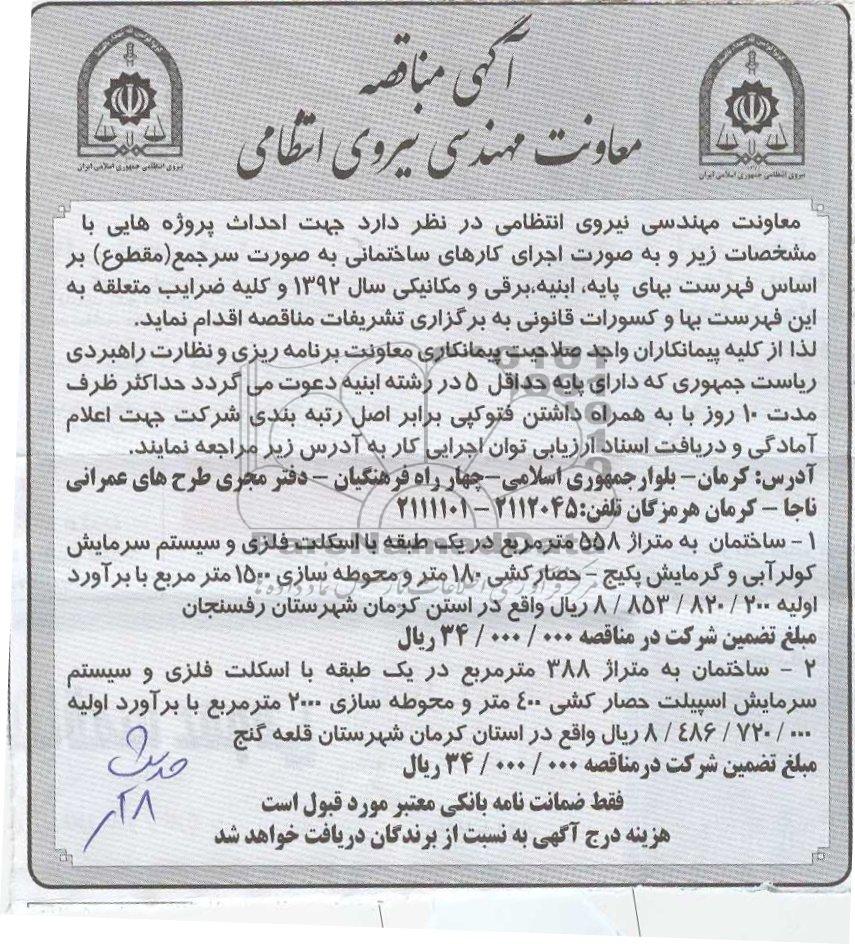 آگهی مناقصه
معاونت مهندسی نیروی انتظامی
نیروی انتظامی جمهوری اسلامی ایران
نیروی انتظامی جمهوری اسلامی ایران
معاونت مهندسی نیروی انتظامی در نظر دارد جهت احداث پروژه هایی با
مشخصات زیر و به صورت اجرای کارهای ساختمانی به صورت سرجمع(مقطوع) بر
اساس فهرست بهای پایه، ابنیه،برقی و مکانیکی سال ۱۳۹۲ و کلیه ضرایب متعلقه به
این فهرست بها و کسورات قانونی به برگزاری تشریفات مناقصه اقدام نماید.
لذا از کلیه پیمانکاران واجد صلاحیت پیمانکاری معاونت برنامه ریزی و نظارت راهبردی
ریاست جمهوری که دارای پایه حداقل ۵ در رشته ابنیه دعوت می گردد حداکثر ظرف
مدت ۱۰ روز با به همراه داشتن فتوکپی برابر اصل رتبه بندی شرکت جهت اعلام
آمادگی و دریافت اسناد ارزیابی توان اجرایی کار به آدرس زیر مراجعه نمایند.
آدرس: کرمان- بلوار جمهوری اسلامی-چهار راه فرهنگیان - دفتر مجری طرح های عمرانی
ناجا - کرمان هرمزگان تلفن:۲۱۱۲۰۴۵ - ۲۱۱۱۱۰۱
۱- ساختمان به متراژ ۵۵۸ مترمربع در یک طبقه با اسکلت فلزی و سیستم سرمایش
کولرآبی و گرمایش پکیج - حصارکشی ۱۸۰ متر و محوطه سازی ۱۵۰۰ متر مربع با برآورد
اولیه ۲۰۰ / ۸۲۰ / ۸۵۳ / ۸ ریال واقع در استن کرمان شهرستان رفسنجان
مبلغ تضمین شرکت در مناقصه ۰۰۰ / ۰۰۰ / ۳۴ ریال
۲ - ساختمان به متراژ ۳۸۸ مترمربع در یک طبقه با اسکلت فلزی و سیستم
سرمایش اسپیلت حصار کشی ۴۰۰ متر و محوطه سازی ۲۰۰۰ مترمربع با برآورد اولیه
۰۰۰ / ۷۲۰ / ۴۸۶ / ۸ ریال واقع در استان کرمان شهرستان قلعه گنج
مبلغ تضمین شرکت درمناقصه ۰۰۰ / ۰۰۰ / ۳۴ ریال
فقط ضمانت نامه بانکی معتبر مورد قبول است
هزینه درج آگهی به نسبت از برندگان دریافت خواهد شد
ParsNamadData